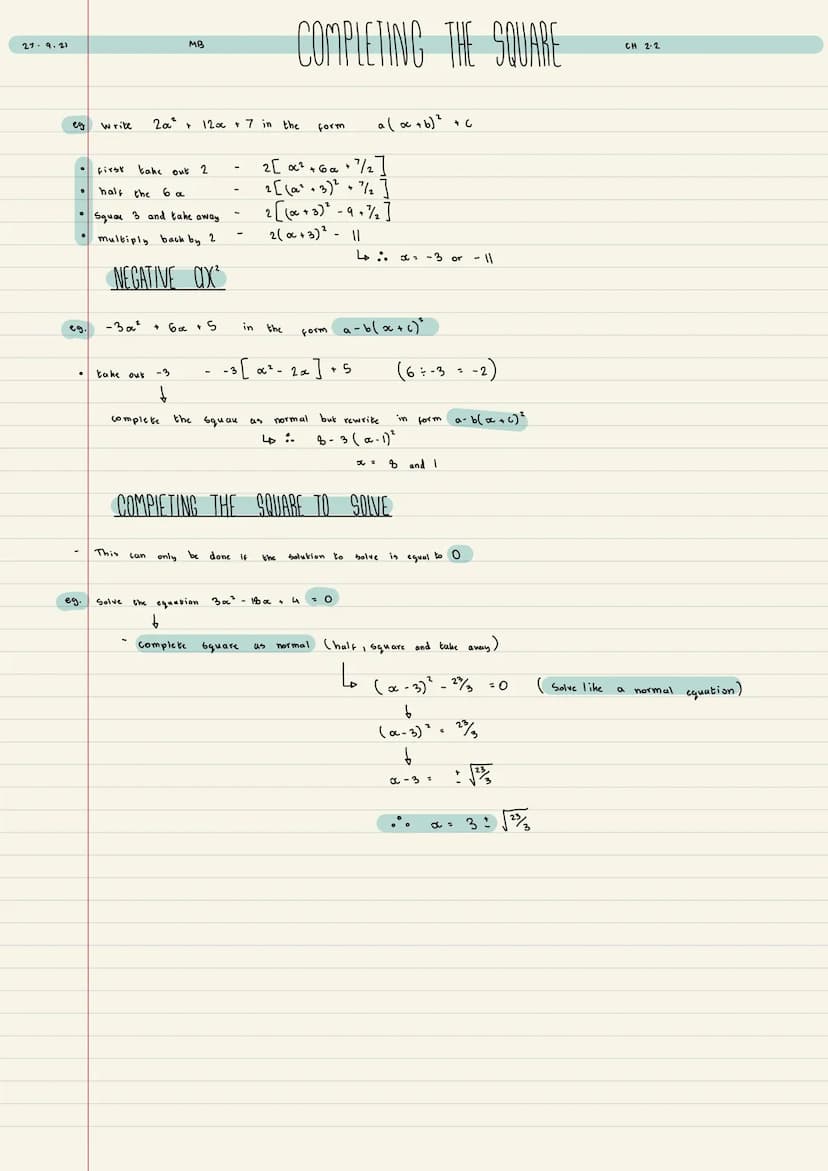 27.9.21 MB COMPLETING THE SQUARE CH 2.2
eg write 2x² + 12x + 7 in the form a(x+b)² + c
• first take out 2 - 2[x² + 6x + 7/2]
• half the 6x - 2[(x² + 3)² + 7/2]
• square 3 and take away - 2[(x+3)² - 9 + 7/2]
• multiply back by 2 - 2(x+3)² - 11
↳ ∴ x = -3 or -11
NEGATIVE ax²
eg. -3x² + 6x + 5 in the form a-b(x+c)²
• take out -3 - -3[x² - 2x] + 5 (6 ÷ -3 = -2)
↓
complete the square as normal but rewrite in form a-b(x+c)²
↳ ∴ 8 - 3(x-1)²
x = 8 and 1
COMPLETING THE SQUARE TO SOLVE
- This can only be done if the solution to solve is equal to 0
eg. Solve the equation 3x² - 18x + 4 = 0
↓
- Complete square as normal (half, square and take away)
↳ (x-3)² - 23/3 = 0 (Solve like a normal equation)
↓
(x-3)² = 23/3
↓
x-3 = ±√23/3
∴ x = 3 ± √23/3